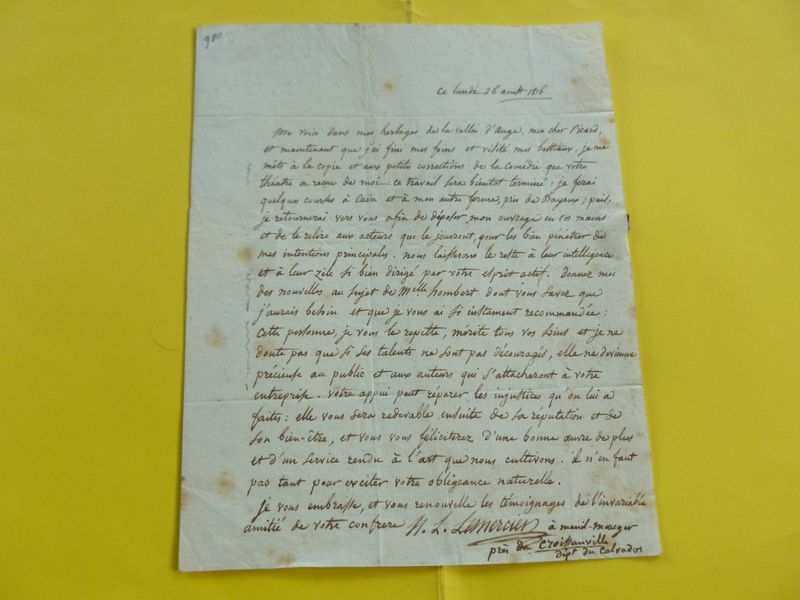 980
Ce lundi 26 aoust 1816
Me voici dans mes herbages de la vallée d'auge, mon cher Picard,
et maintenant que j'ai fini mes foins et visité mes bestiaux, je me
mets à la copie et aux petites corrections de la comédie que votre
théatre a reçue de moi : ce travail sera bientot terminé : je ferai
quelques courses à Caën et à mon autre ferme, près de Bayeux ; puis,
je retournerai vers vous afin de déposer mon ouvrage en vos mains
et de le relire aux acteurs qui le joueront, pour les bien pénétrer de
mes intentions principales. nous laisserons le reste à leur intelligence
et à leur zèle si bien dirigé par votre esprit actif. donnez moi
des nouvelles au sujet de Melle hombert dont vous savez que
j'aurais besoin et que je vous ai si instament recommandée :
cette personne, je vous le repette, mérite tous vos soins et je ne
doute pas que si ses talents ne sont pas découragés, elle ne devienne
précieuse au public et aux auteurs qui s'attacheront à votre
entreprise. votre appui peut réparer les injustices qu'on lui a
faites : elle vous sera redevable ensuite de sa réputation et de
son bien-être, et vous vous féliciterez d'une bonne œuvre de plus
et d'un service rendu à l'art que nous cultivons. il n'en faut
pas tant pour exciter votre obligeance naturelle.
je vous embrasse, et vous renouvelle les témoignages de l'invariable
amitié de votre confrere N. L. Lemercier à menil-mauger
près de Croissanville
dépt du Calvados